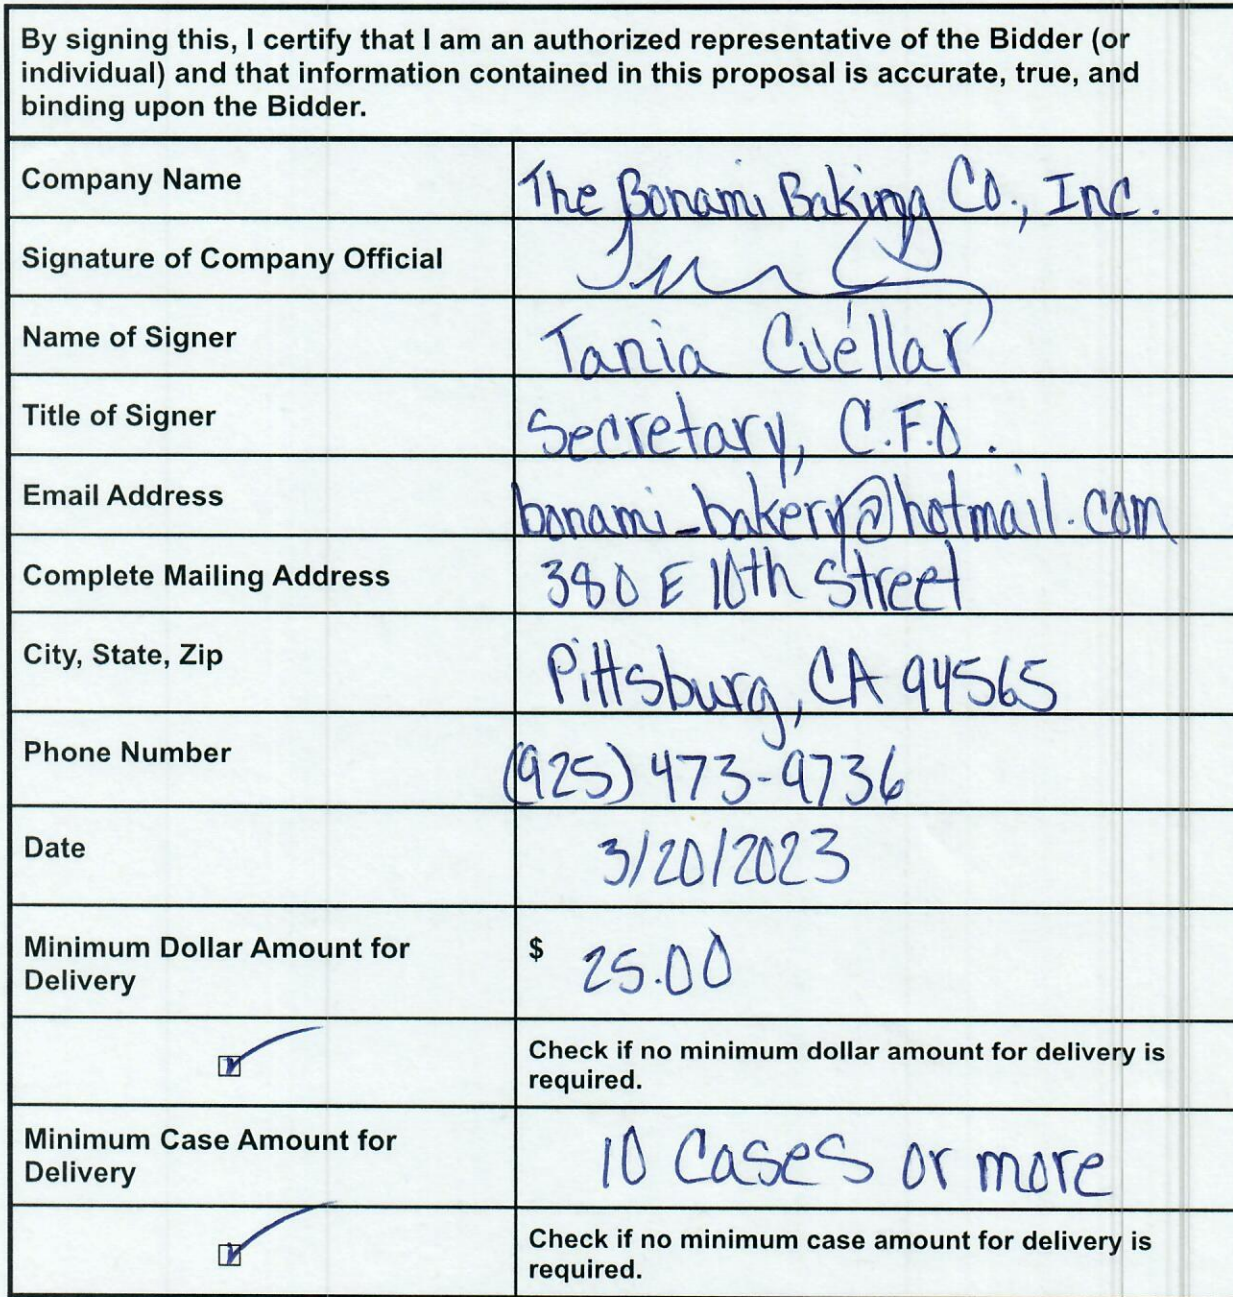 By signing this, I certify that I am an authorized representative of the Bidder (or
individual) and that information contained in this proposal is accurate, true, and
binding upon the Bidder.
Company Name
The Bonami Baking Co., Inc.
Signature of Company Official
Name of Signer
Tania Cuéllar
Title of Signer
Secretary, C.F.O.
Email Address
bonami_bakery@hotmail.com
Complete Mailing Address
380 E 10th Street
City, State, Zip
Pittsburg, CA 94565
Phone Number
(925) 473-9736
Date
3/20/2023
Minimum Dollar Amount for
Delivery
$ 25.00
Check if no minimum dollar amount for delivery is
required.
Minimum Case Amount for
Delivery
10 Cases or more
Check if no minimum case amount for delivery is
required.